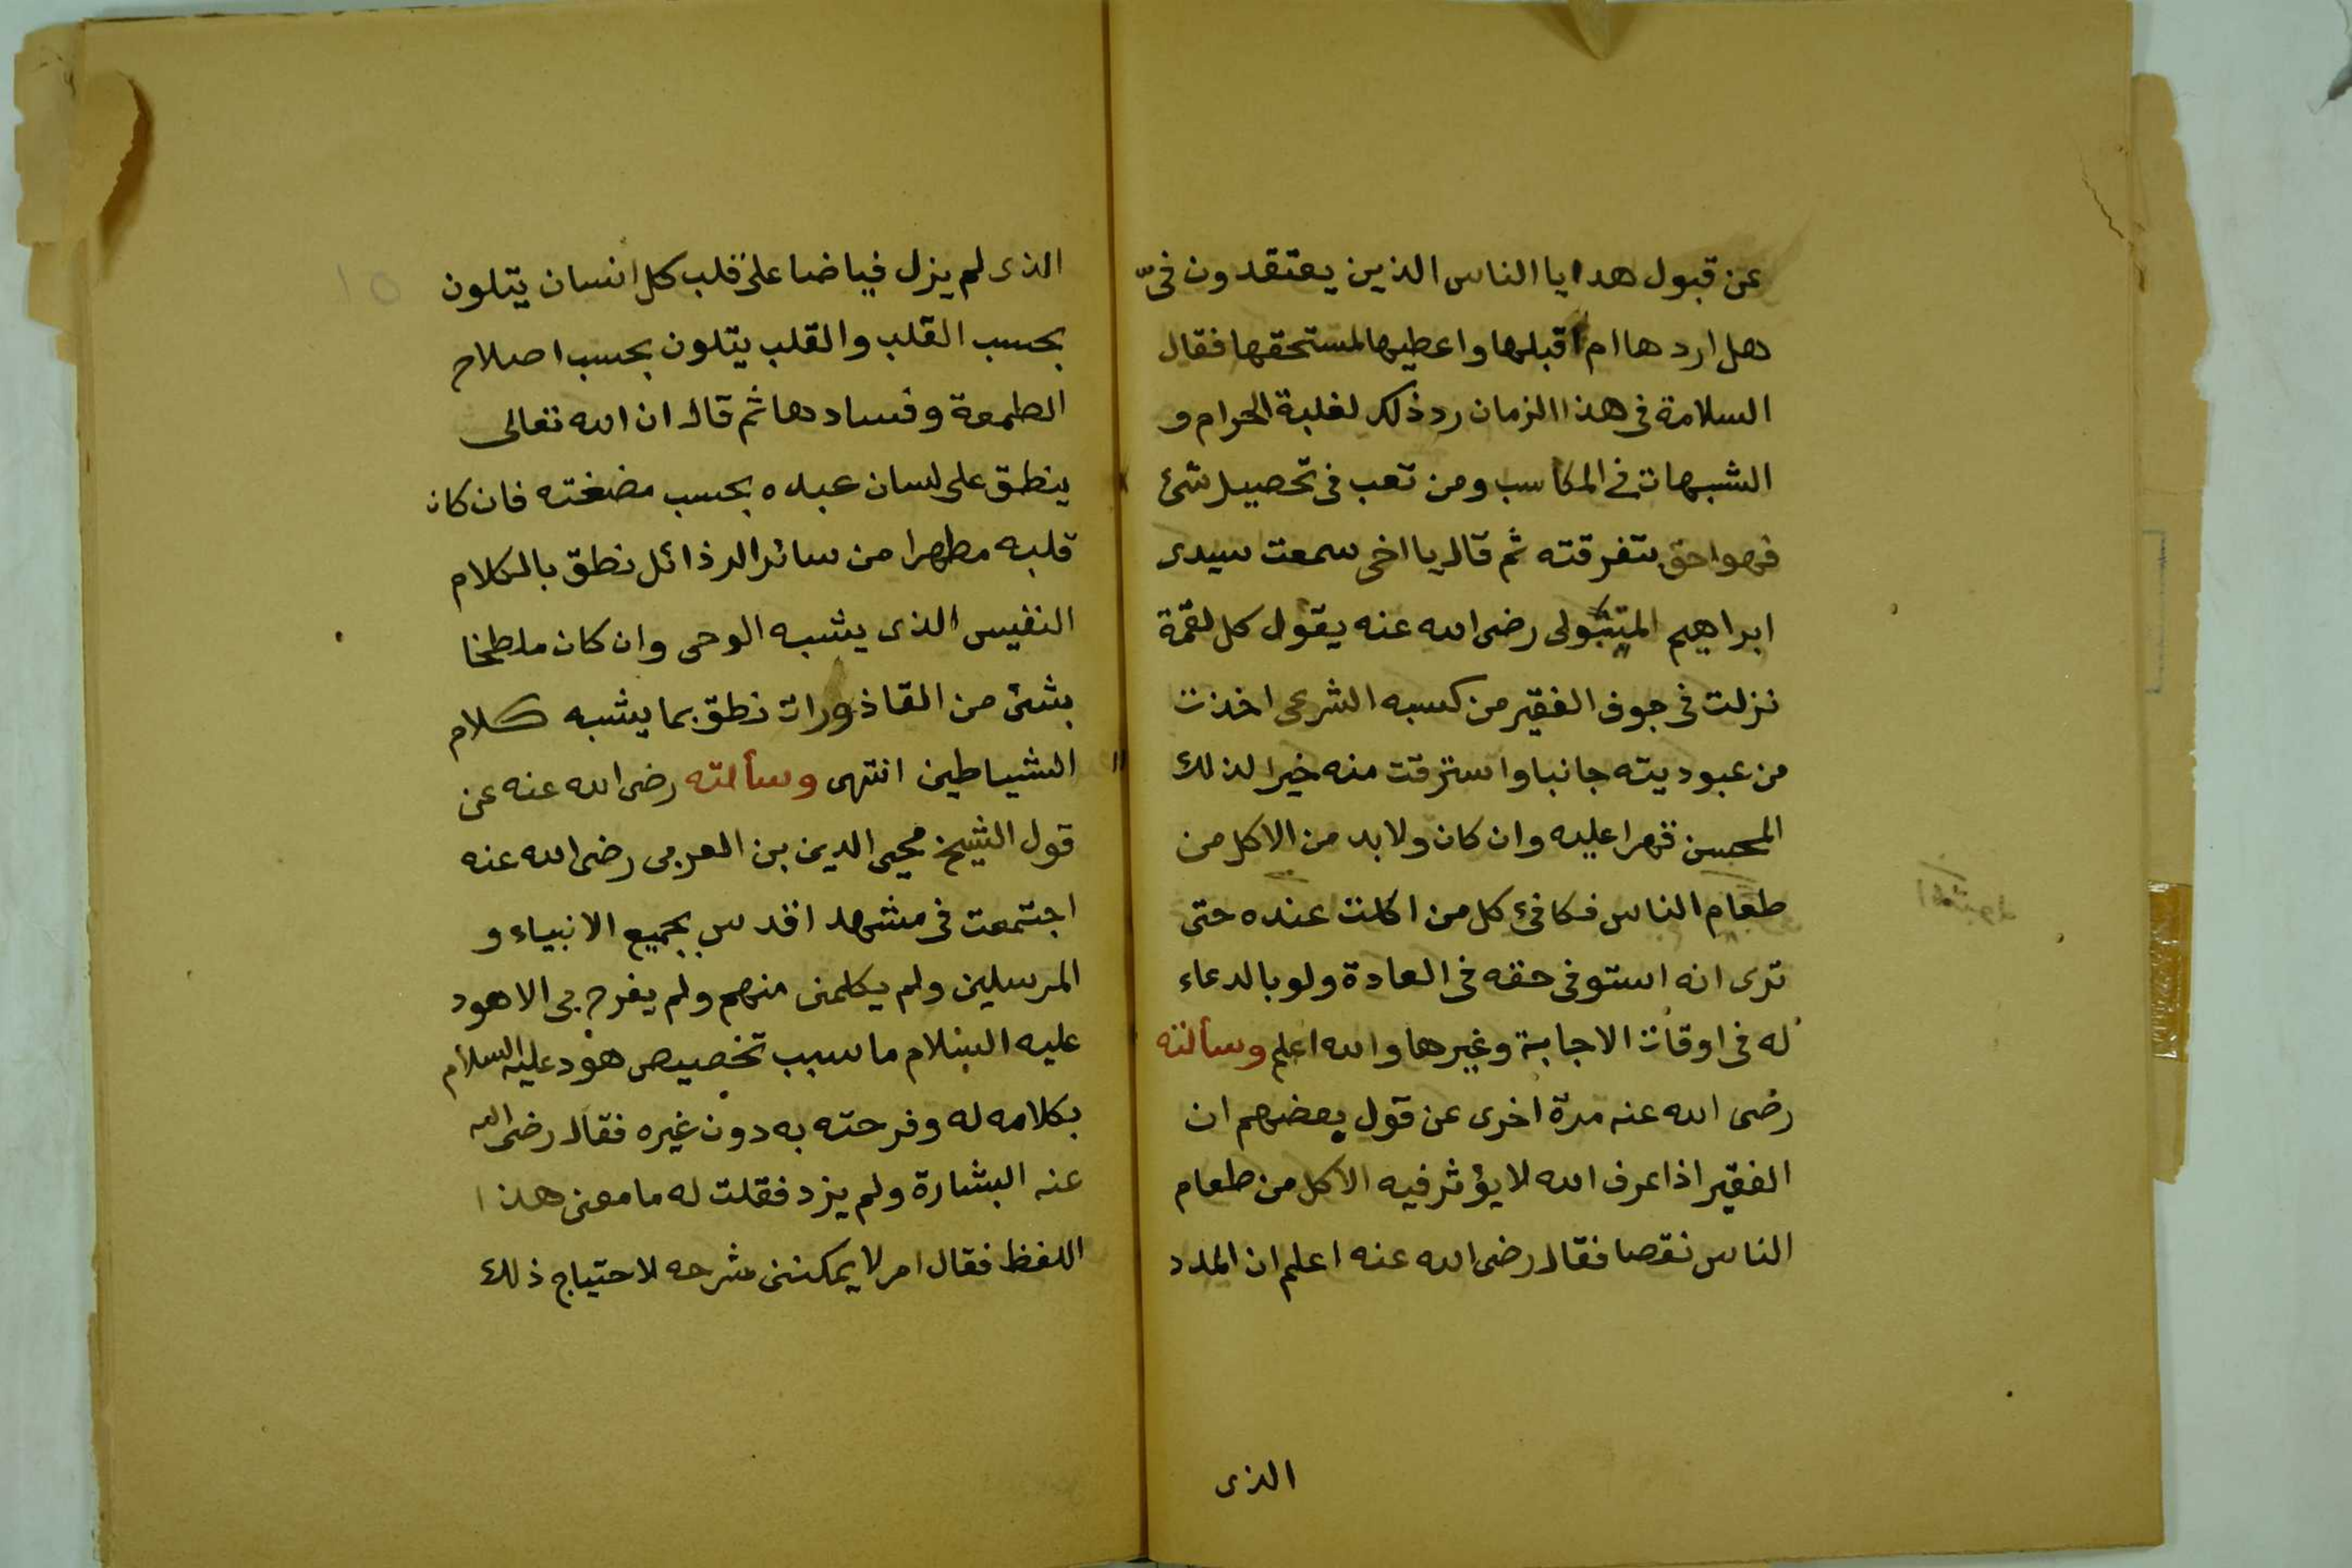 عن قبول هدايا الناس الذين يعتقدون فىّ
هل اردها ام اقبلها واعطيها لمستحقها فقال
السلامة فى هذا الزمان رد ذلك لغلبة الحرام و
الشبهات فى المكاسب ومن تعب فى تحصيل شئ
فهو احق بتفرقته ثم قال يا اخى سمعت سيدى
ابراهيم المتبولى رضى الله عنه يقول كل لقمة
نزلت فى جوف الفقير من كسبه الشرعى اخذت
من عبوديته جانبا واسترقت منه خيرا لذلك
المحسن قهرا عليه وان كان ولا بد من الاكل من
طعام الناس فكافئ كل من اكلت عنده حتى
ترى انه استوفى حقه فى العادة ولو بالدعاء
له فى اوقات الاجابة وغيرها والله اعلم وسألته
رضى الله عنه مرة اخرى عن قول بعضهم ان
الفقير اذا عرف الله لا يؤثر فيه الاكل من طعام
الناس نقصا فقال رضى الله عنه اعلم ان المدد
الذى
المتبولى
١٥
الذى لم يزل فياضا على قلب كل انسان يتلون
بحسب القلب والقلب يتلون بحسب اصلاح
الطعمة وفسادها ثم قال ان الله تعالى
ينطق على لسان عبده بحسب مضغته فان كان
قلبه مطهرا من سائر الرذائل نطق بالكلام
النفيس الذى يشبه الوحى وان كان ملطخا
بشئ من القاذورات نطق بما يشبه كلام
الشياطين انتهى وسألته رضى الله عنه عن
قول الشيخ محيى الدين بن العربى رضى الله عنه
اجتمعت فى مشهد اقدس بجميع الانبياء و
المرسلين ولم يكلمنى منهم ولم يفرح بى الا هود
عليه السلام ما سبب تخصيص هود عليه السلام
بكلامه له وفرحته به دون غيره فقال رضى الله
عنه البشارة ولم يزد فقلت له ما معنى هذا
اللفظ فقال امر لا يمكننى شرحه لاحتياج ذلك